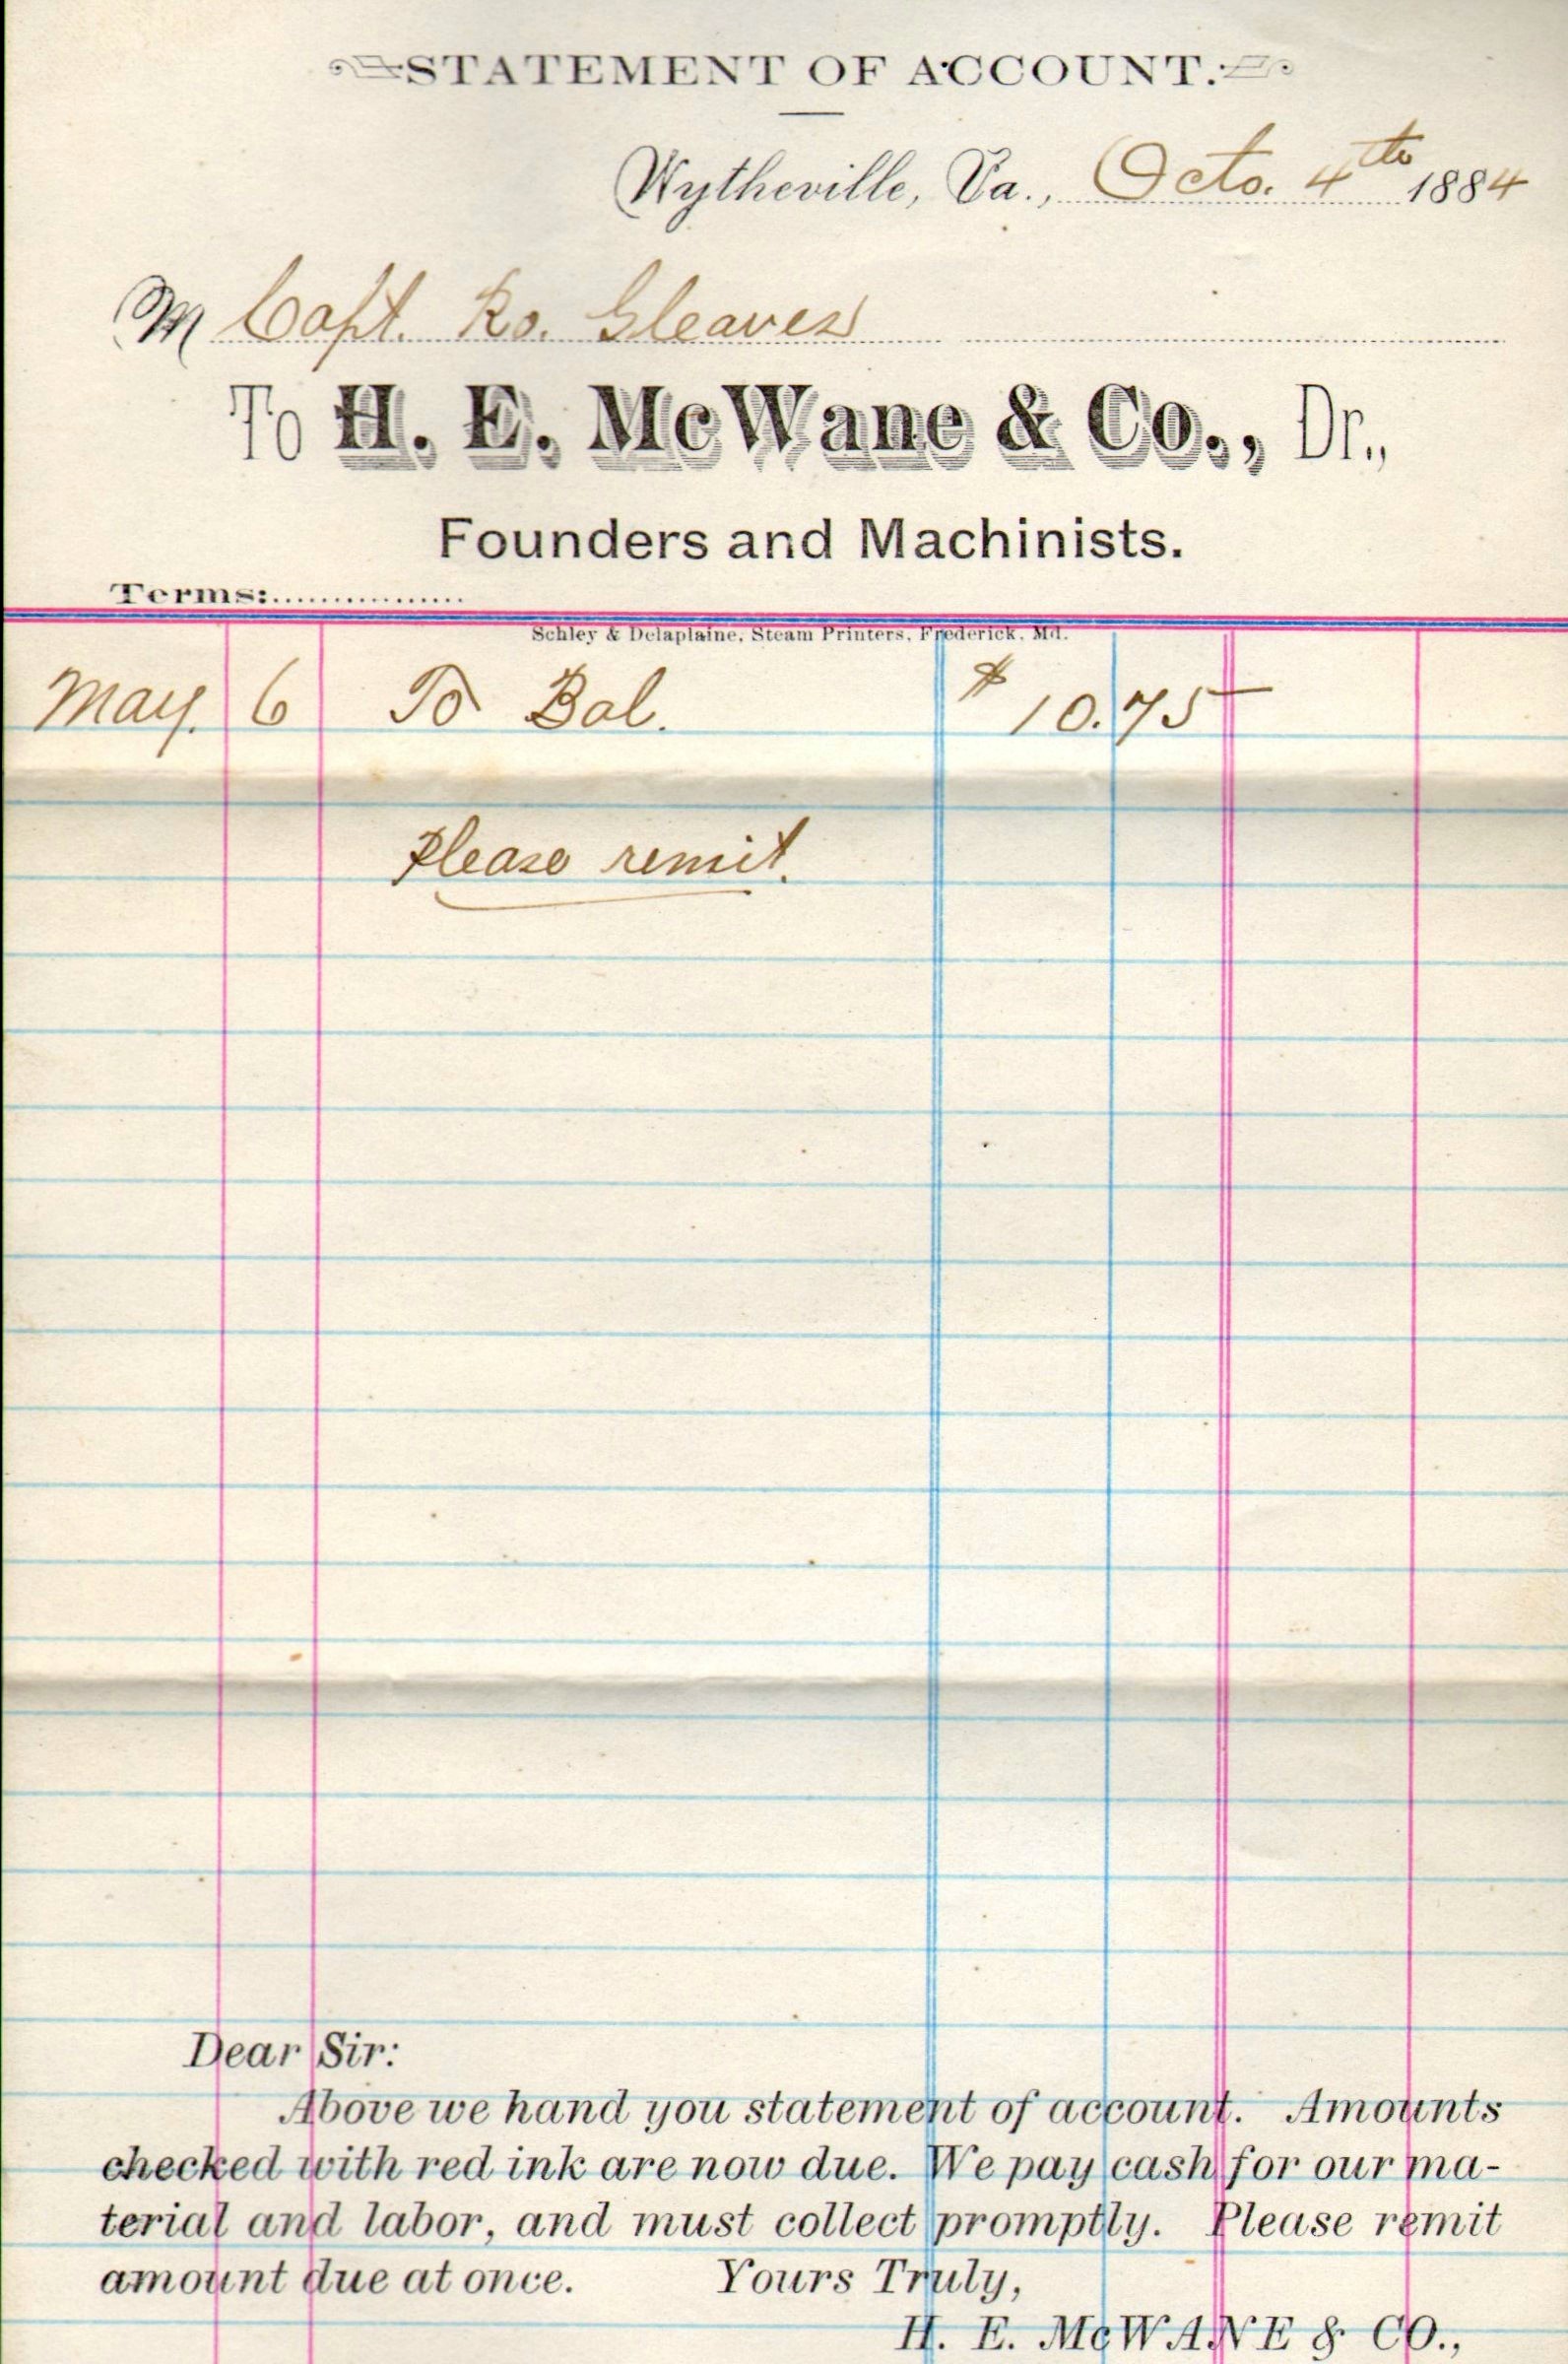 STATEMENT OF ACCOUNT.
Wytheville, Va., Octo. 4th 1884
M Capt. Ro. Gleaves
To H. E. McWane & Co., Dr.,
Founders and Machinists.
Terms:
Schley & Delaplaine, Steam Printers, Frederick, Md.
May. 6 To Bal. $10.75
Please remit.
Dear Sir:
Above we hand you statement of account. Amounts
checked with red ink are now due. We pay cash for our ma-
terial and labor, and must collect promptly. Please remit
amount due at once. Yours Truly,
H. E. McWANE & CO.,